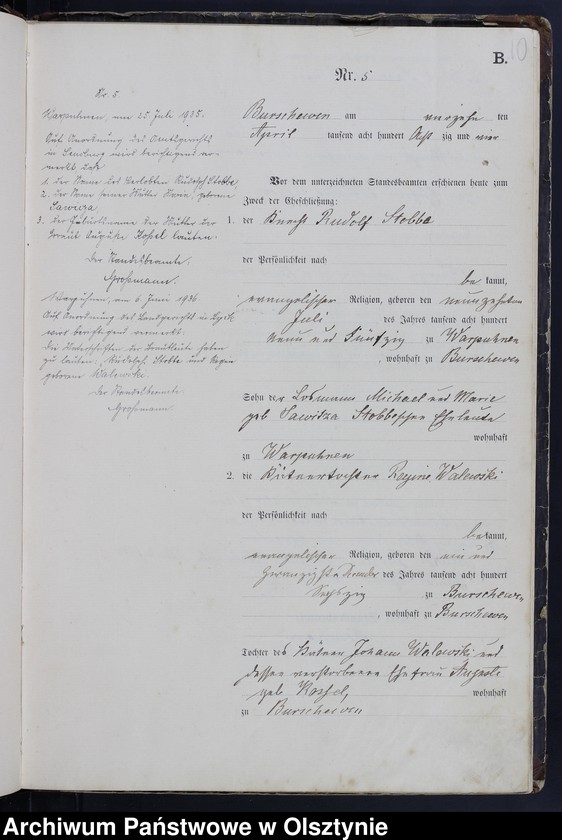 B.
10
Nr. 5
Burschewen am vierzehn ten
April tausend acht hundert Acht zig und vier
Vor dem unterzeichneten Standesbeamten erschienen heute zum
Zweck der Eheschließung:
1. der Knecht Rudolf Stobbe
der Persönlichkeit nach
be kannt,
evangelischer Religion, geboren den neunzehnten
Juli des Jahres tausend acht hundert
neun und Fünfzig zu Warpuhnen
, wohnhaft zu Burschewen
Sohn der Losmann Michael und Marie
geb Sawitza Stobbeschen Eheleute
wohnhaft
zu Warpuhnen
2. die Käthnertochter Regine Walewski
der Persönlichkeit nach
bekannt,
evangelischer Religion, geboren den ein und
Zwanzigste des Jahres tausend acht hundert
Sechszig zu Burschewen
, wohnhaft zu Burschewen
Tochter des Käthner Johann Walewski und
dessen verstorbenen Ehefrau Auguste
geb Kossel, wohnhaft
zu Burschewen
Nr. 5.
Warpuhnen, am 25. Juli 1935.
Auf Anordnung des Amtsgerichts
in Sensburg wird berichtigend ver-
merkt, daß
1. der Name des Verlobten Rudolph Stobbe
2. der Name seiner Mutter Maria, geborene
Sawitza
3. der Geburtsname der Mutter der
Braut Auguste Kossel lauten.
Der Standesbeamte.
Großmann.
Warpuhnen, am 6. Juni 1936.
Auf Anordnung des Landgerichts in Lyck
wird berichtigend vermerkt:
Die Unterschriften der Brautleute haben
zu lauten: Rudolph Stobbe und Regine
geborene Walewski.
Der Standesbeamte
Großmann.
Archiwum Państwowe w Olsztynie